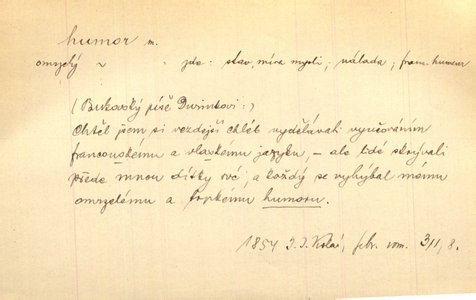 humor m.
omrzelý ~ jde: stav, míra mysli; nálada; fran. humeur
(Bukovský píše Durinkovi:)
Chtěl jsem si vezdejší chléb vydělávati vyučováním
francouskému a vlaskému jazyku, – ale lidé skrývali
přede mnou dítky své, a každý se vyhýbal mému
omrzelému a trpkému humoru.
1854 J. J. Kolár, febr. rom. 3/1, 8.